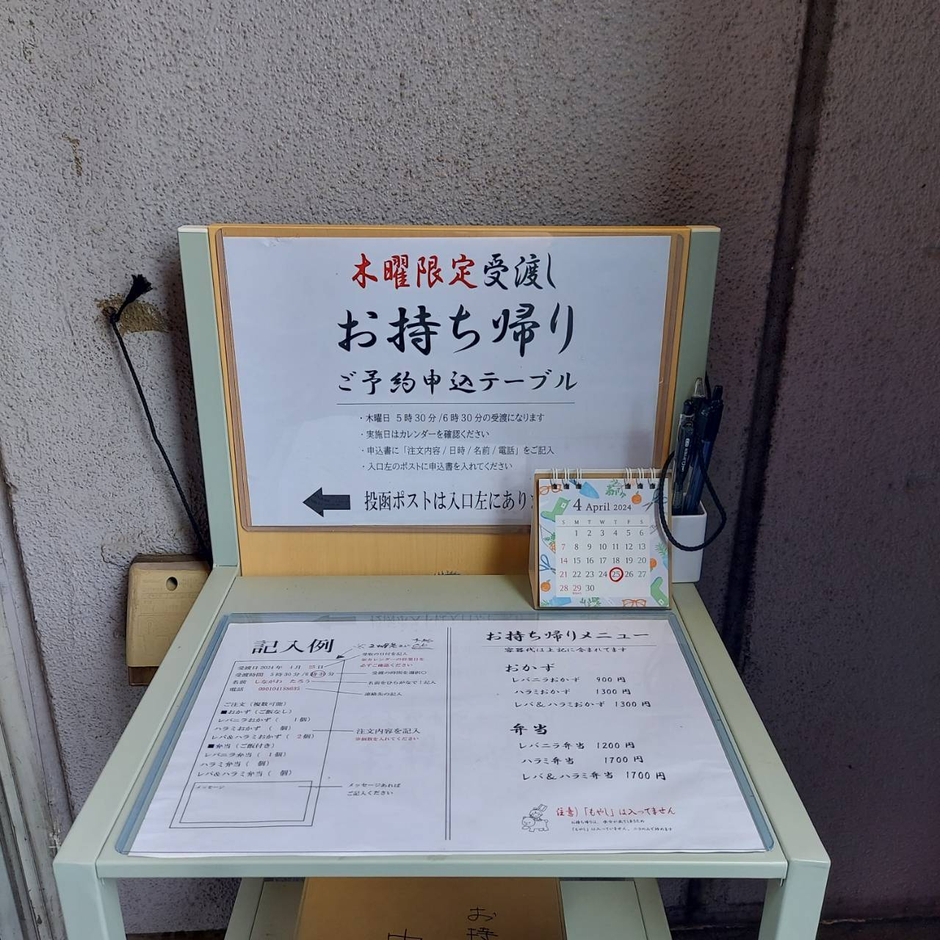 木曜限定受渡し
お持ち帰り
ご予約申込テーブル
・木曜日 5時30分/6時30分の受渡になります
・実施日はカレンダーを確認ください
・申込書に「注文内容/日時/名前/電話」をご記入
・入口左のポストに申込書を入れてください
投函ポストは入口左にあり
4 April 2024
S M T W T F S
1 2 3 4 5 6
7 8 9 10 11 12 13
14 15 16 17 18 19 20
21 22 23 24 25 26 27
28 29 30
記入例
受渡日 2024年 1月 日
受渡時間 5時30分/6時30分
名前 しながわ たろう
電話
ご注文（複数可能）
■おかず（ご飯なし）
レバニラおかず（ 1個）
ハラミおかず（ 個）
レバ&ハラミおかず（ 2個）
■弁当（ご飯付き）
レバニラ弁当（ 1個）
ハラミ弁当（ 個）
レバ&ハラミ弁当（ 個）
メッセージ
受取の日付を記入
※カレンダーの営業日を
必ずご確認ください
受渡の時間を選択○
名前をひらがなでご記入
連絡先の記入
注文内容を記入
※個数を入れてください
メッセージあれば
ご記入ください
お持ち帰りメニュー
容器代は上記に含まれてます
おかず
レバニラおかず 900円
ハラミおかず 1300円
レバ&ハラミおかず 1300円
弁当
レバニラ弁当 1200円
ハラミ弁当 1700円
レバ&ハラミ弁当 1700円
注意）「もやし」は入ってません
お持